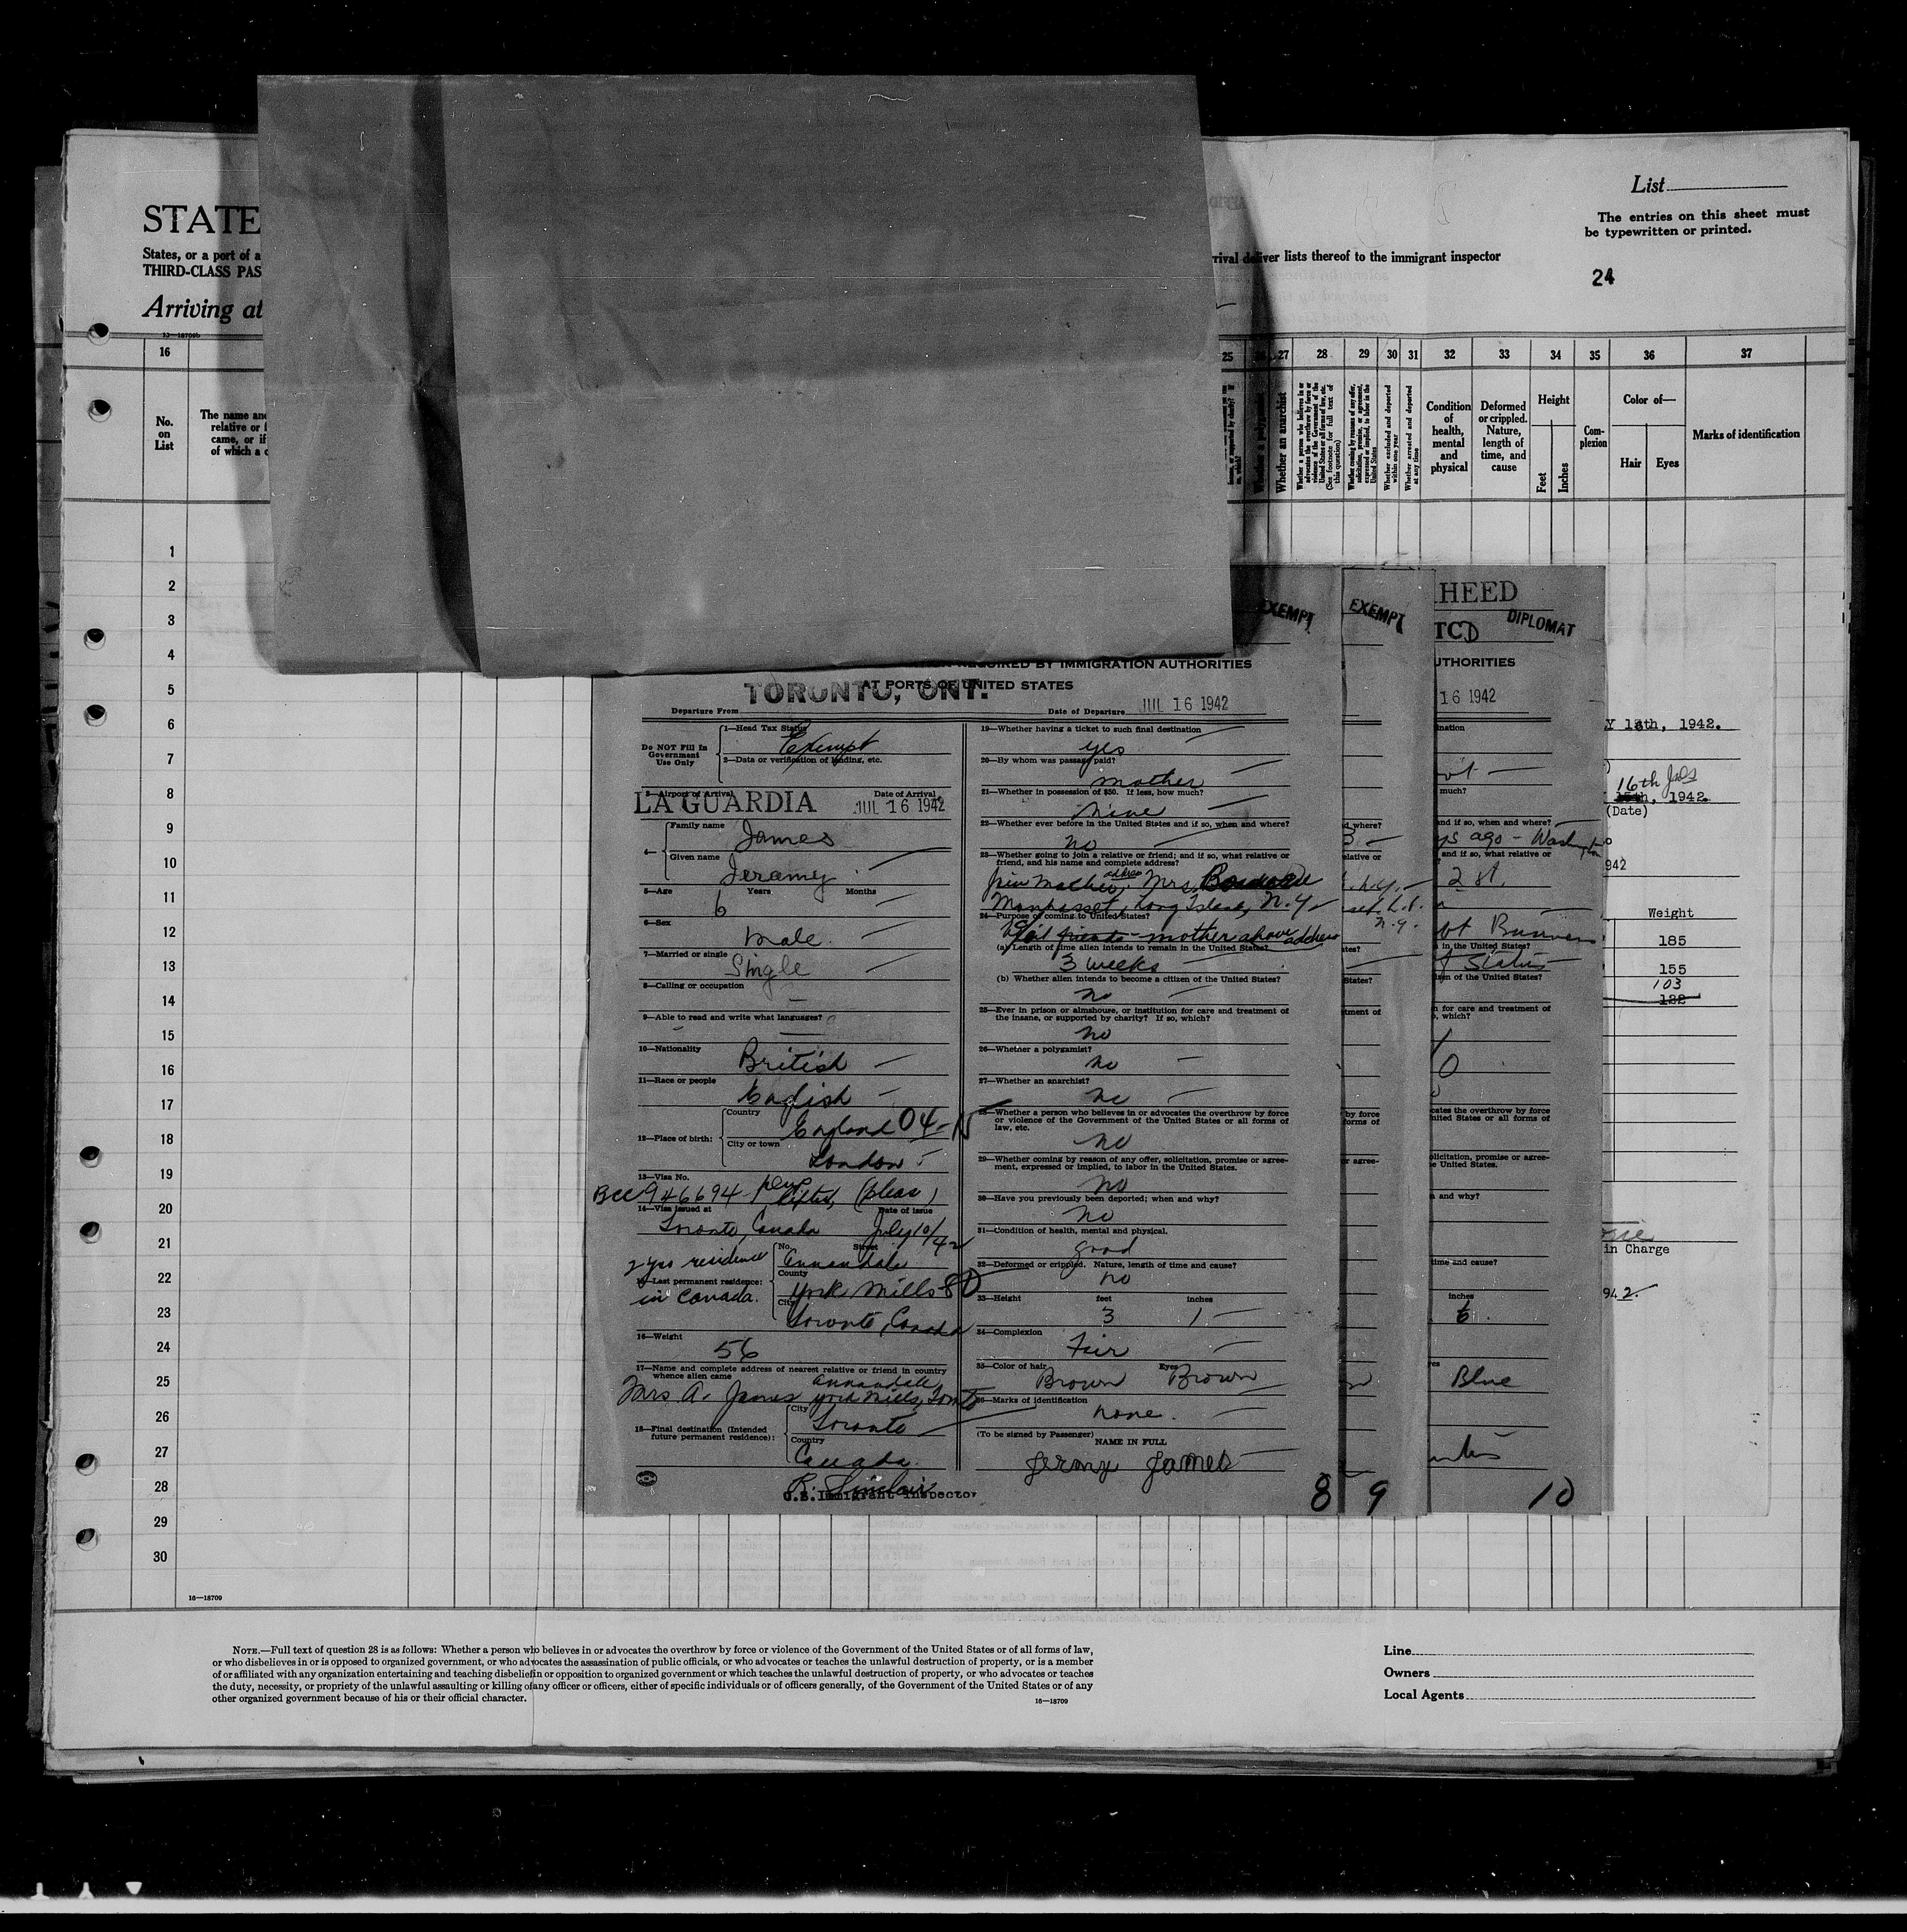 List
The entries on this sheet must
be typewritten or printed.
24
STATE
States, or a port of a
THIRD-CLASS PAS
Arriving at
rival deliver lists thereof to the immigrant inspector
16
No.
on
List
The name and
relative or f
came, or if
of which a c
25 27 28 29 30 31 32 33 34 35 36 37
Whether a polygamist
Whether an anarchist
Whether a person who believes in or
advocates the overthrow by force or
violence of the Government of the
United States or all forms of law, etc.
(See footnote for full text of
this question)
Whether coming by reason of any offer,
solicitation, promise, or agreement,
expressed or implied, to labor in the
United States
Whether excluded and deported
within one year
Whether arrested and deported
at any time
Condition
of
health,
mental
and
physical
Deformed
or crippled.
Nature,
length of
time, and
cause
Height
Feet
Inches
Com-
plexion
Color of—
Hair
Eyes
Marks of identification
1
2
3
4
5
6
7
8
9
10
11
12
13
14
15
16
17
18
19
20
21
22
23
24
25
26
27
28
29
30
16—18709
EXEMPT
REQUIRED BY IMMIGRATION AUTHORITIES
AT PORTS OF UNITED STATES
TORONTO, ONT.
Departure From
Date of Departure JUL 16 1942
Do NOT Fill In
Government
Use Only
1—Head Tax Status
Exempt
2—Data or verification of landing, etc.
3—Airport of Arrival Date of Arrival
LA GUARDIA JUL 16 1942
4— Family name James
Given name Jeramy
5—Age Years Months
6
6—Sex
male
7—Married or single
Single
8—Calling or occupation
—
9—Able to read and write what languages?
—
10—Nationality
British —
11—Race or people
English —
12—Place of birth:
Country
England 04-15
City or town
London
13—Visa No.
BCC 946694 (pleas)
14—Visa issued at Date of issue
Toronto, Canada July 10/42
2 yrs residence
in Canada.
15—Last permanent residence:
No. Street
Annandale
County
York Mills 80
City
Toronto, Canada
16—Weight
56
17—Name and complete address of nearest relative or friend in country
whence alien came
Annandale
Mrs A. James York Mills, Toronto
18—Final destination (Intended
future permanent residence):
City
Toronto
Country
Canada.
R. Sinclair
U.S. Immigrant Inspector
19—Whether having a ticket to such final destination
yes
20—By whom was passage paid?
mother
21—Whether in possession of $50. If less, how much?
22—Whether ever before in the United States and if so, when and where?
no
23—Whether going to join a relative or friend; and if so, what relative or
friend, and his name and complete address?
join mother, address Mrs.
Manhasset, Long Island, N.Y.
24—Purpose of coming to United States?
visit friends - mother above address
(a) Length of time alien intends to remain in the United States?
3 weeks
(b) Whether alien intends to become a citizen of the United States?
no
25—Ever in prison or almshouse, or institution for care and treatment of
the insane, or supported by charity? If so, which?
no
26—Whether a polygamist?
no
27—Whether an anarchist?
no
28—Whether a person who believes in or advocates the overthrow by force
or violence of the Government of the United States or all forms of
law, etc.
no
29—Whether coming by reason of any offer, solicitation, promise or agree-
ment, expressed or implied, to labor in the United States.
no
30—Have you previously been deported; when and why?
no
31—Condition of health, mental and physical.
good
32—Deformed or crippled. Nature, length of time and cause?
no
33—Height feet inches
3 1
34—Complexion
Fair
35—Color of hair Eyes
Brown Brown
36—Marks of identification
none.
(To be signed by Passenger)
NAME IN FULL
Jermy James
8
EXEMPT
d where?
elative or
N.Y.
ates?
States?
tment of
by force
forms of
r agree-
9
HEED
DIPLOMAT
TCD
UTHORITIES
16 1942
ination
much?
and if so, when and where?
ys ago - Washington
and if so, what relative or
2 st.
in the United States?
zen of the United States?
n for care and treatment of
, which?
cates the overthrow by force
nited States or all forms of
olicitation, promise or agree-
e United States.
n and why?
time and cause?
inches
6
Blue
10
Y 13th, 1942.
16th
15th, 1942.
(Date)
942
Weight
185
155
103
122
in Charge
942.
NOTE.—Full text of question 28 is as follows: Whether a person who believes in or advocates the overthrow by force or violence of the Government of the United States or of all forms of law,
or who disbelieves in or is opposed to organized government, or who advocates the assassination of public officials, or who advocates or teaches the unlawful destruction of property, or is a member
of or affiliated with any organization entertaining and teaching disbelief in or opposition to organized government or which teaches the unlawful destruction of property, or who advocates or teaches
the duty, necessity, or propriety of the unlawful assaulting or killing of any officer or officers, either of specific individuals or of officers generally, of the Government of the United States or of any
other organized government because of his or their official character.
16—18709
Line
Owners
Local Agents